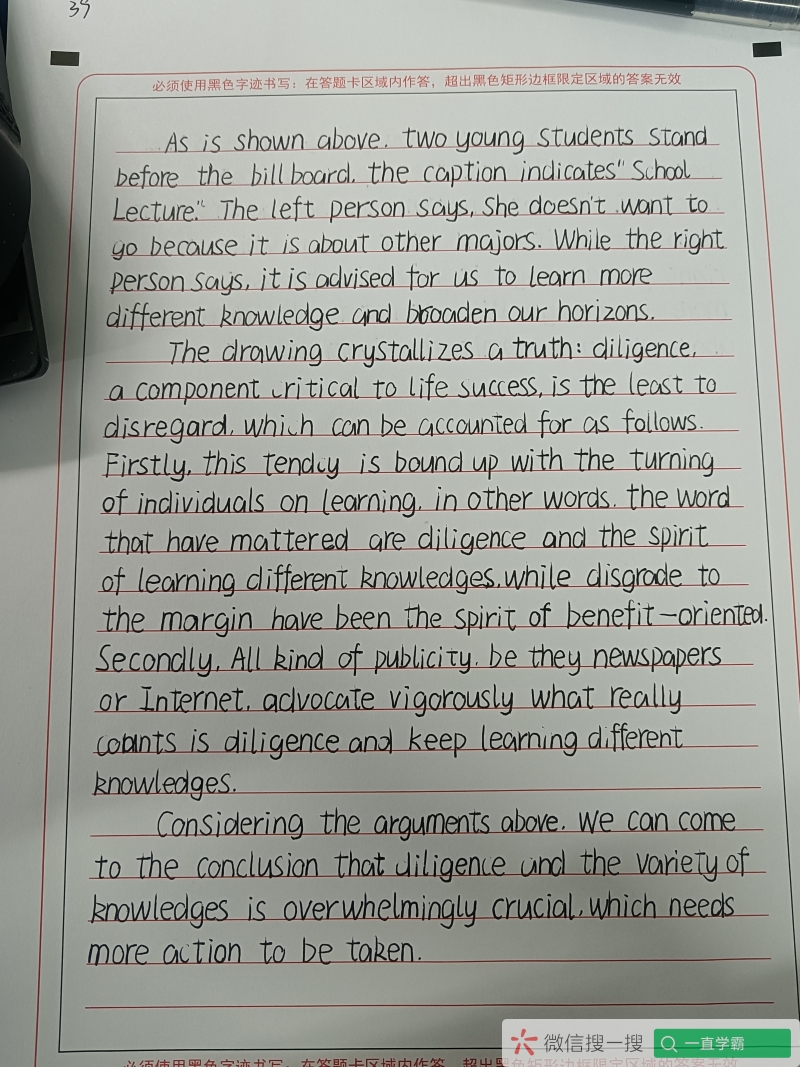 39
必须使用黑色字迹书写：在答题卡区域内作答，超出黑色矩形边框限定区域的答案无效
As is shown above, two young students stand
before the billboard, the caption indicates "School
Lecture." The left person says, She doesn't want to
go because it is about other majors. While the right
person says, it is advised for us to learn more
different knowledge and broaden our horizons.
The drawing crystallizes a truth: diligence,
a component critical to life success, is the least to
disregard, which can be accounted for as follows.
Firstly, this tendcy is bound up with the turning
of individuals on learning, in other words, the word
that have mattered are diligence and the spirit
of learning different knowledges, while disgrade to
the margin have been the spirit of benefit-oriented.
Secondly, All kind of publicity, be they newspapers
or Internet, advocate vigorously what really
counts is diligence and keep learning different
knowledges.
Considering the arguments above, we can come
to the conclusion that diligence and the variety of
knowledges is overwhelmingly crucial, which needs
more action to be taken.
必须使用黑色字迹书写：在答题卡区域内作答，超出黑色矩形边框限定区域的答案无效
微信搜一搜
一直学霸